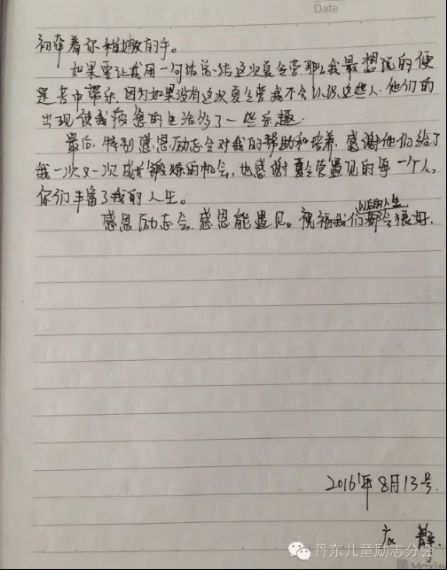 Date
初牵着你稚嫩的手。
如果要让我用一句话总结这次夏令营那么我最想说的便
是苦中带乐，因为如果没有这次夏令营我不会认识这些人，他们的
出现使我疲惫的生活多了一些乐趣.
最后，特别感恩励志会对我的帮助和培养，感谢他们给了
我一次又一次成长锻炼的机会，也感谢夏令营遇见的每一个人，
你们丰富了我的人生。
感恩励志会，感恩能遇见。祝福我们以后的人生都会很好.
2016年8月13号.
静.
丹东儿童励志分会